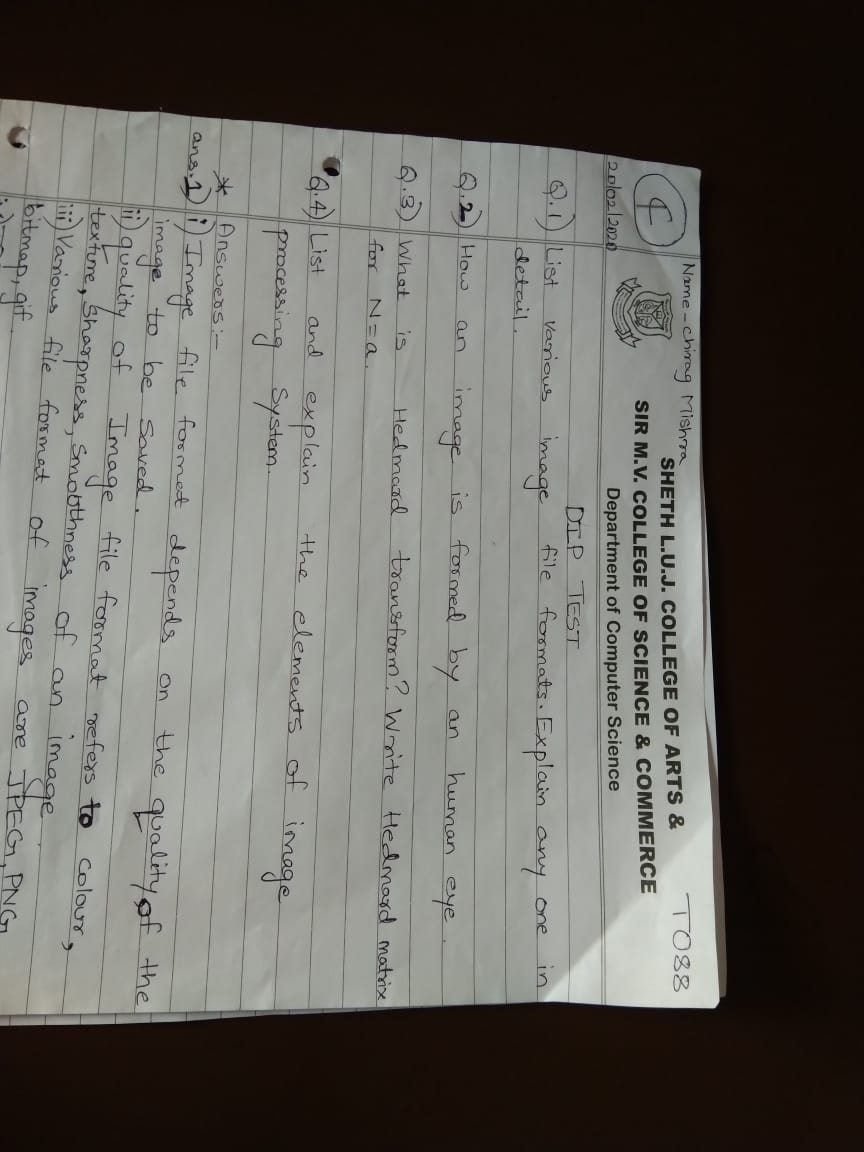 Name - Chirag Mishra
T088
SHETH L.U.J. COLLEGE OF ARTS &
SIR M.V. COLLEGE OF SCIENCE & COMMERCE
Department of Computer Science
20/02/2020
DIP TEST
Q.1) List various image file formats. Explain any one in
detail.
Q.2) How an image is formed by an human eye.
Q.3) What is Hedmard transform? Write Hedmard matrix
for N=a.
Q.4) List and explain the elements of image
processing System.
* Answers:-
ans.1) i) Image file format depends on the quality of the
image to be saved.
ii) quality of Image file format refers to colour,
texture, Sharpness, Smoothness of an image
iii) Various file format of images are JPEG, PNG
bitmap, gif.